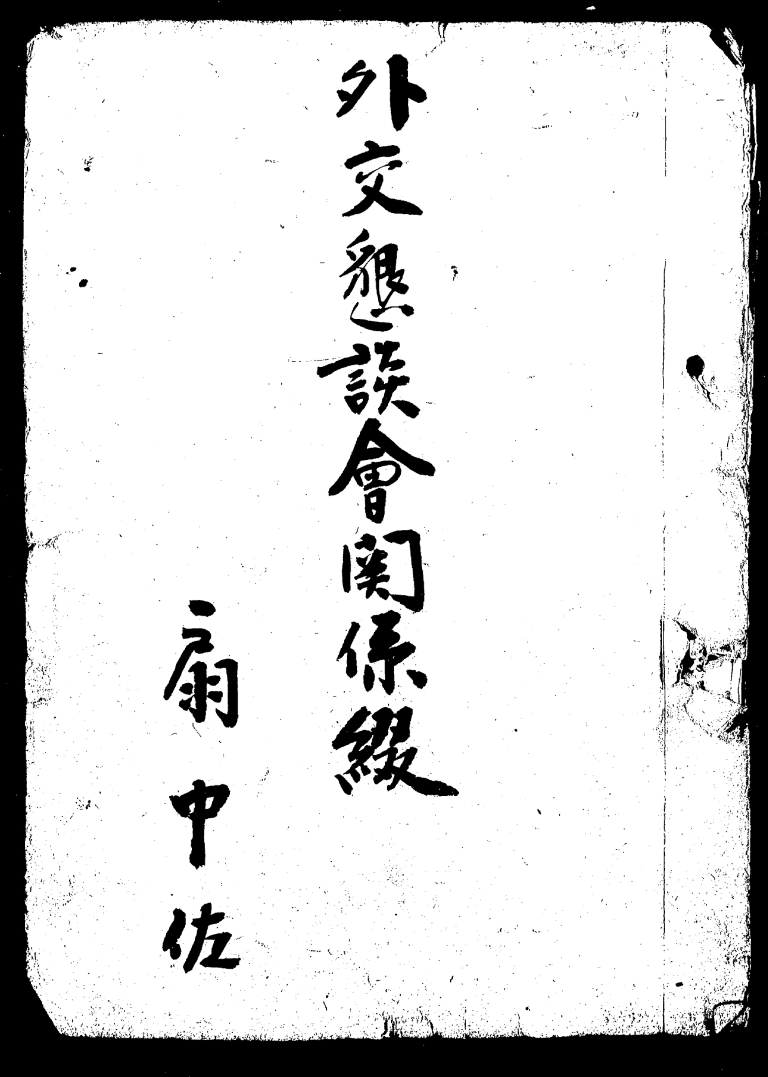 外交懇談會関係綴
扇中佐